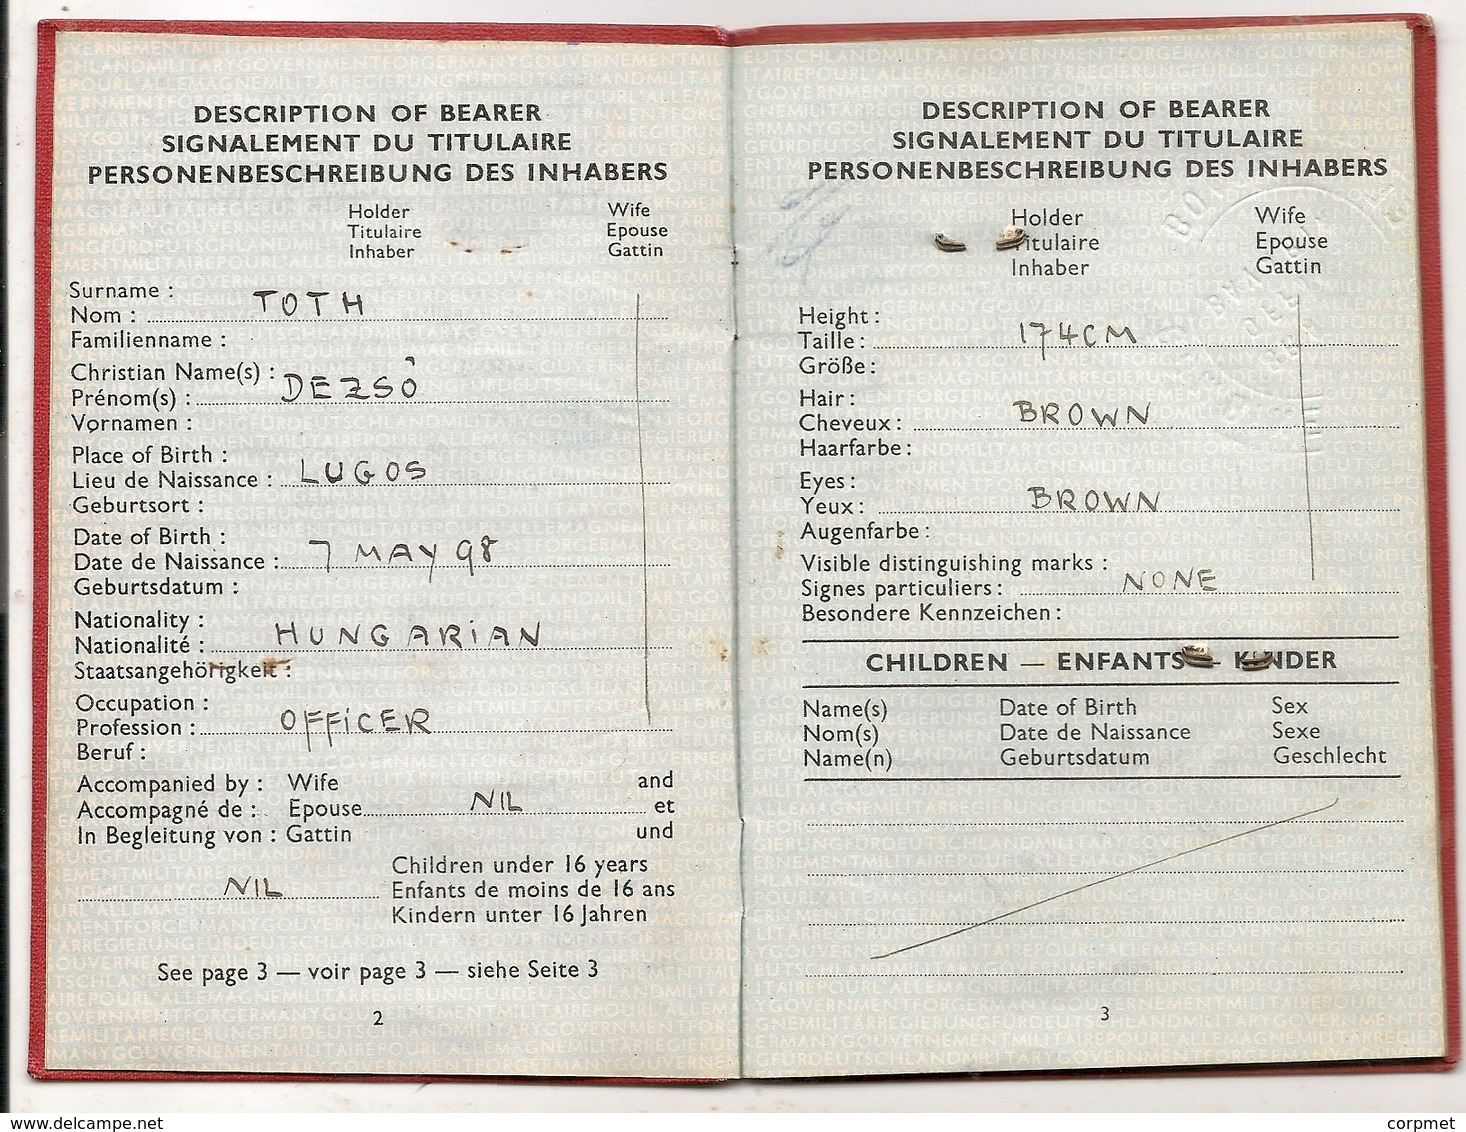 DESCRIPTION OF BEARER
SIGNALEMENT DU TITULAIRE
PERSONENBESCHREIBUNG DES INHABERS
Holder Wife
Titulaire Epouse
Inhaber Gattin
Surname :
Nom : TOTH
Familienname :
Christian Name(s) :
Prénom(s) : DEZSÔ
Vornamen :
Place of Birth :
Lieu de Naissance : LUGOS
Geburtsort :
Date of Birth :
Date de Naissance : 7 MAY 98
Geburtsdatum :
Nationality :
Nationalité : HUNGARIAN
Staatsangehörigkeit :
Occupation :
Profession : OFFICER
Beruf :
Accompanied by : Wife and
Accompagné de : Epouse NIL et
In Begleitung von : Gattin und
Children under 16 years
NIL Enfants de moins de 16 ans
Kindern unter 16 Jahren
See page 3 — voir page 3 — siehe Seite 3
2
DESCRIPTION OF BEARER
SIGNALEMENT DU TITULAIRE
PERSONENBESCHREIBUNG DES INHABERS
Holder Wife
Titulaire Epouse
Inhaber Gattin
Height :
Taille : 174CM
Größe :
Hair :
Cheveux : BROWN
Haarfarbe :
Eyes :
Yeux : BROWN
Augenfarbe :
Visible distinguishing marks :
Signes particuliers : NONE
Besondere Kennzeichen :
CHILDREN — ENFANTS — KINDER
Name(s) Date of Birth Sex
Nom(s) Date de Naissance Sexe
Name(n) Geburtsdatum Geschlecht
3
www.delcampe.net
corpmet